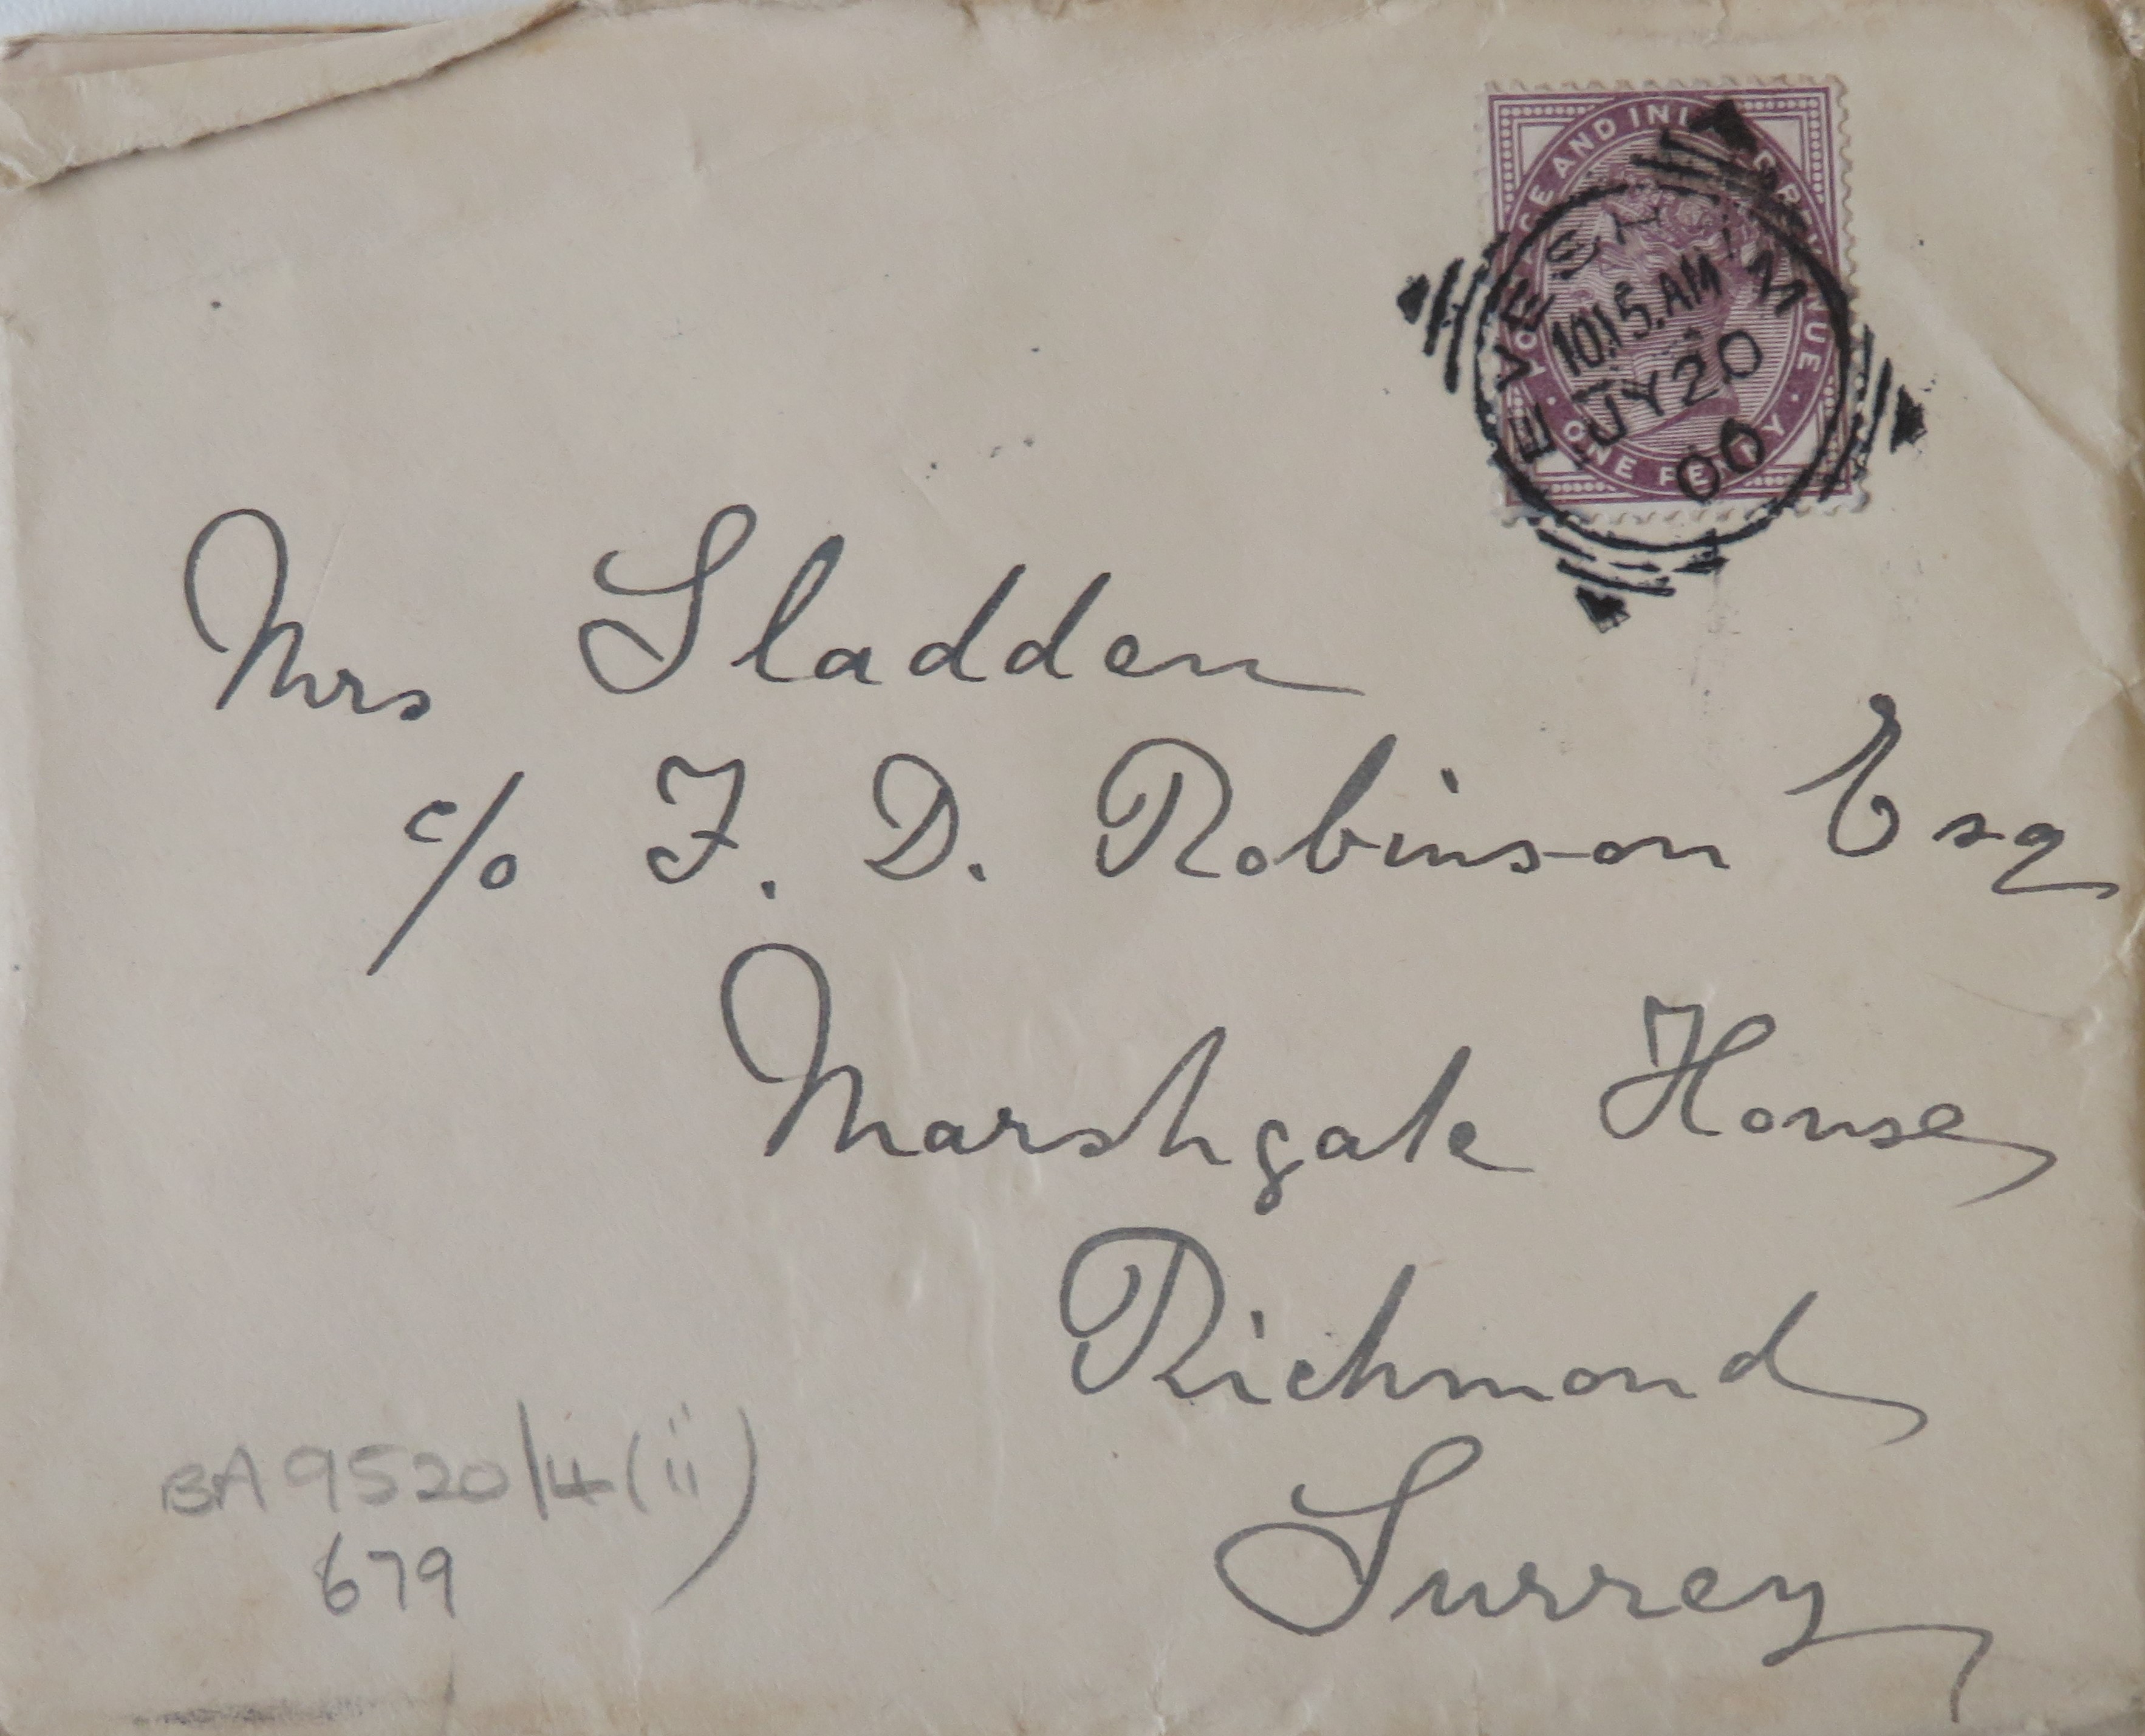 POSTAGE AND INLAND REVENUE
ONE PENNY
EVESHAM
10.15.AM
JY 20
06
Mrs Sladden
c/o F. D. Robinson Esq
Marshgate House
Richmond
Surrey
BA 9520/14(ii)
679